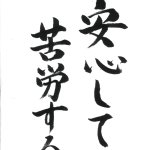 安心して
苦労する